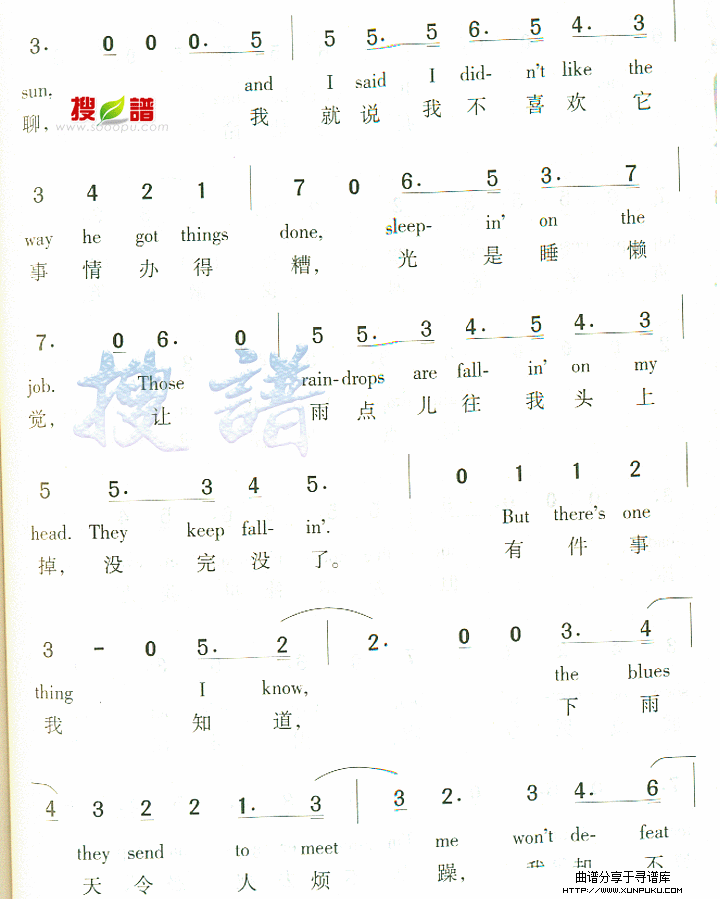 3. 0 0 0. 5 | 5 5. 5 6. 5 4. 3 |
sun, and I said I did- n't like the
聊, 我 就 说 我 不 喜 欢 它
搜谱
www.sooopu.com
3 4 2 1 | 7 0 6. 5 3. 7 |
way he got things done, sleep- in' on the
事 情 办 得 糟, 光 是 睡 懒
7. 0 6. 0 | 5 5. 3 4. 5 4. 3 |
job. Those rain-drops are fall- in' on my
觉, 让 雨 点 儿 往 我 头 上
搜谱
5 5. 3 4 5. | 0 1 1 2 |
head. They keep fall- in'. But there's one
掉, 没 完 没 了。 有 件 事
3 - 0 5. 2 | 2. 0 0 3. 4 |
thing I know, the blues
我 知 道, 下 雨
4 3 2 2 1. 3 | 3 2. 3 4. 6 |
they send to meet me won't de- feat
天 令 人 烦 躁, 我 却 不
曲谱分享于寻谱库
HTTP://WWW.XUNPUKU.COM